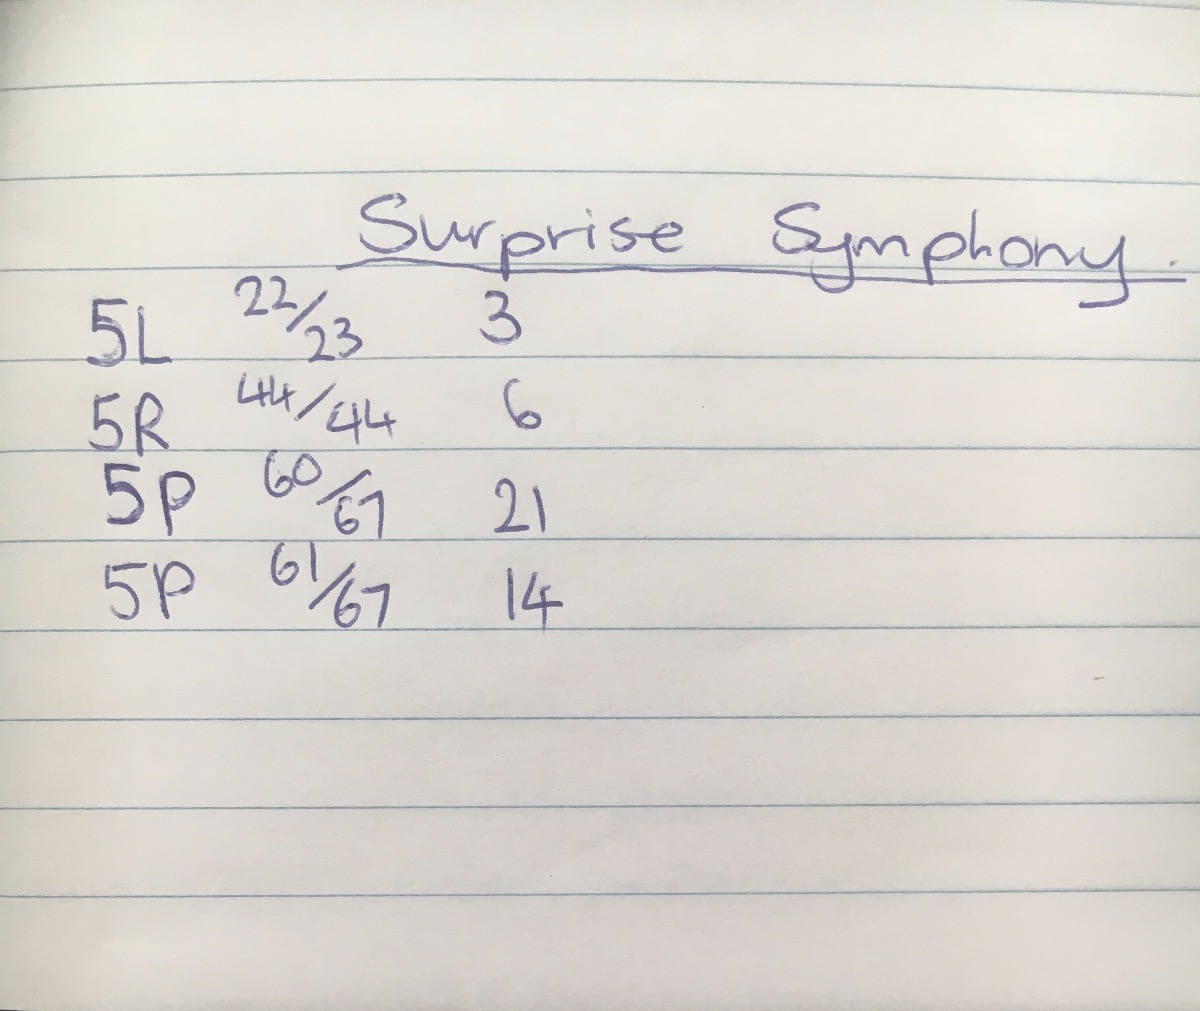 Surprise Symphony.
5L 22/23 3
5R 44/44 6
5P 60/67 21
5P 61/67 14